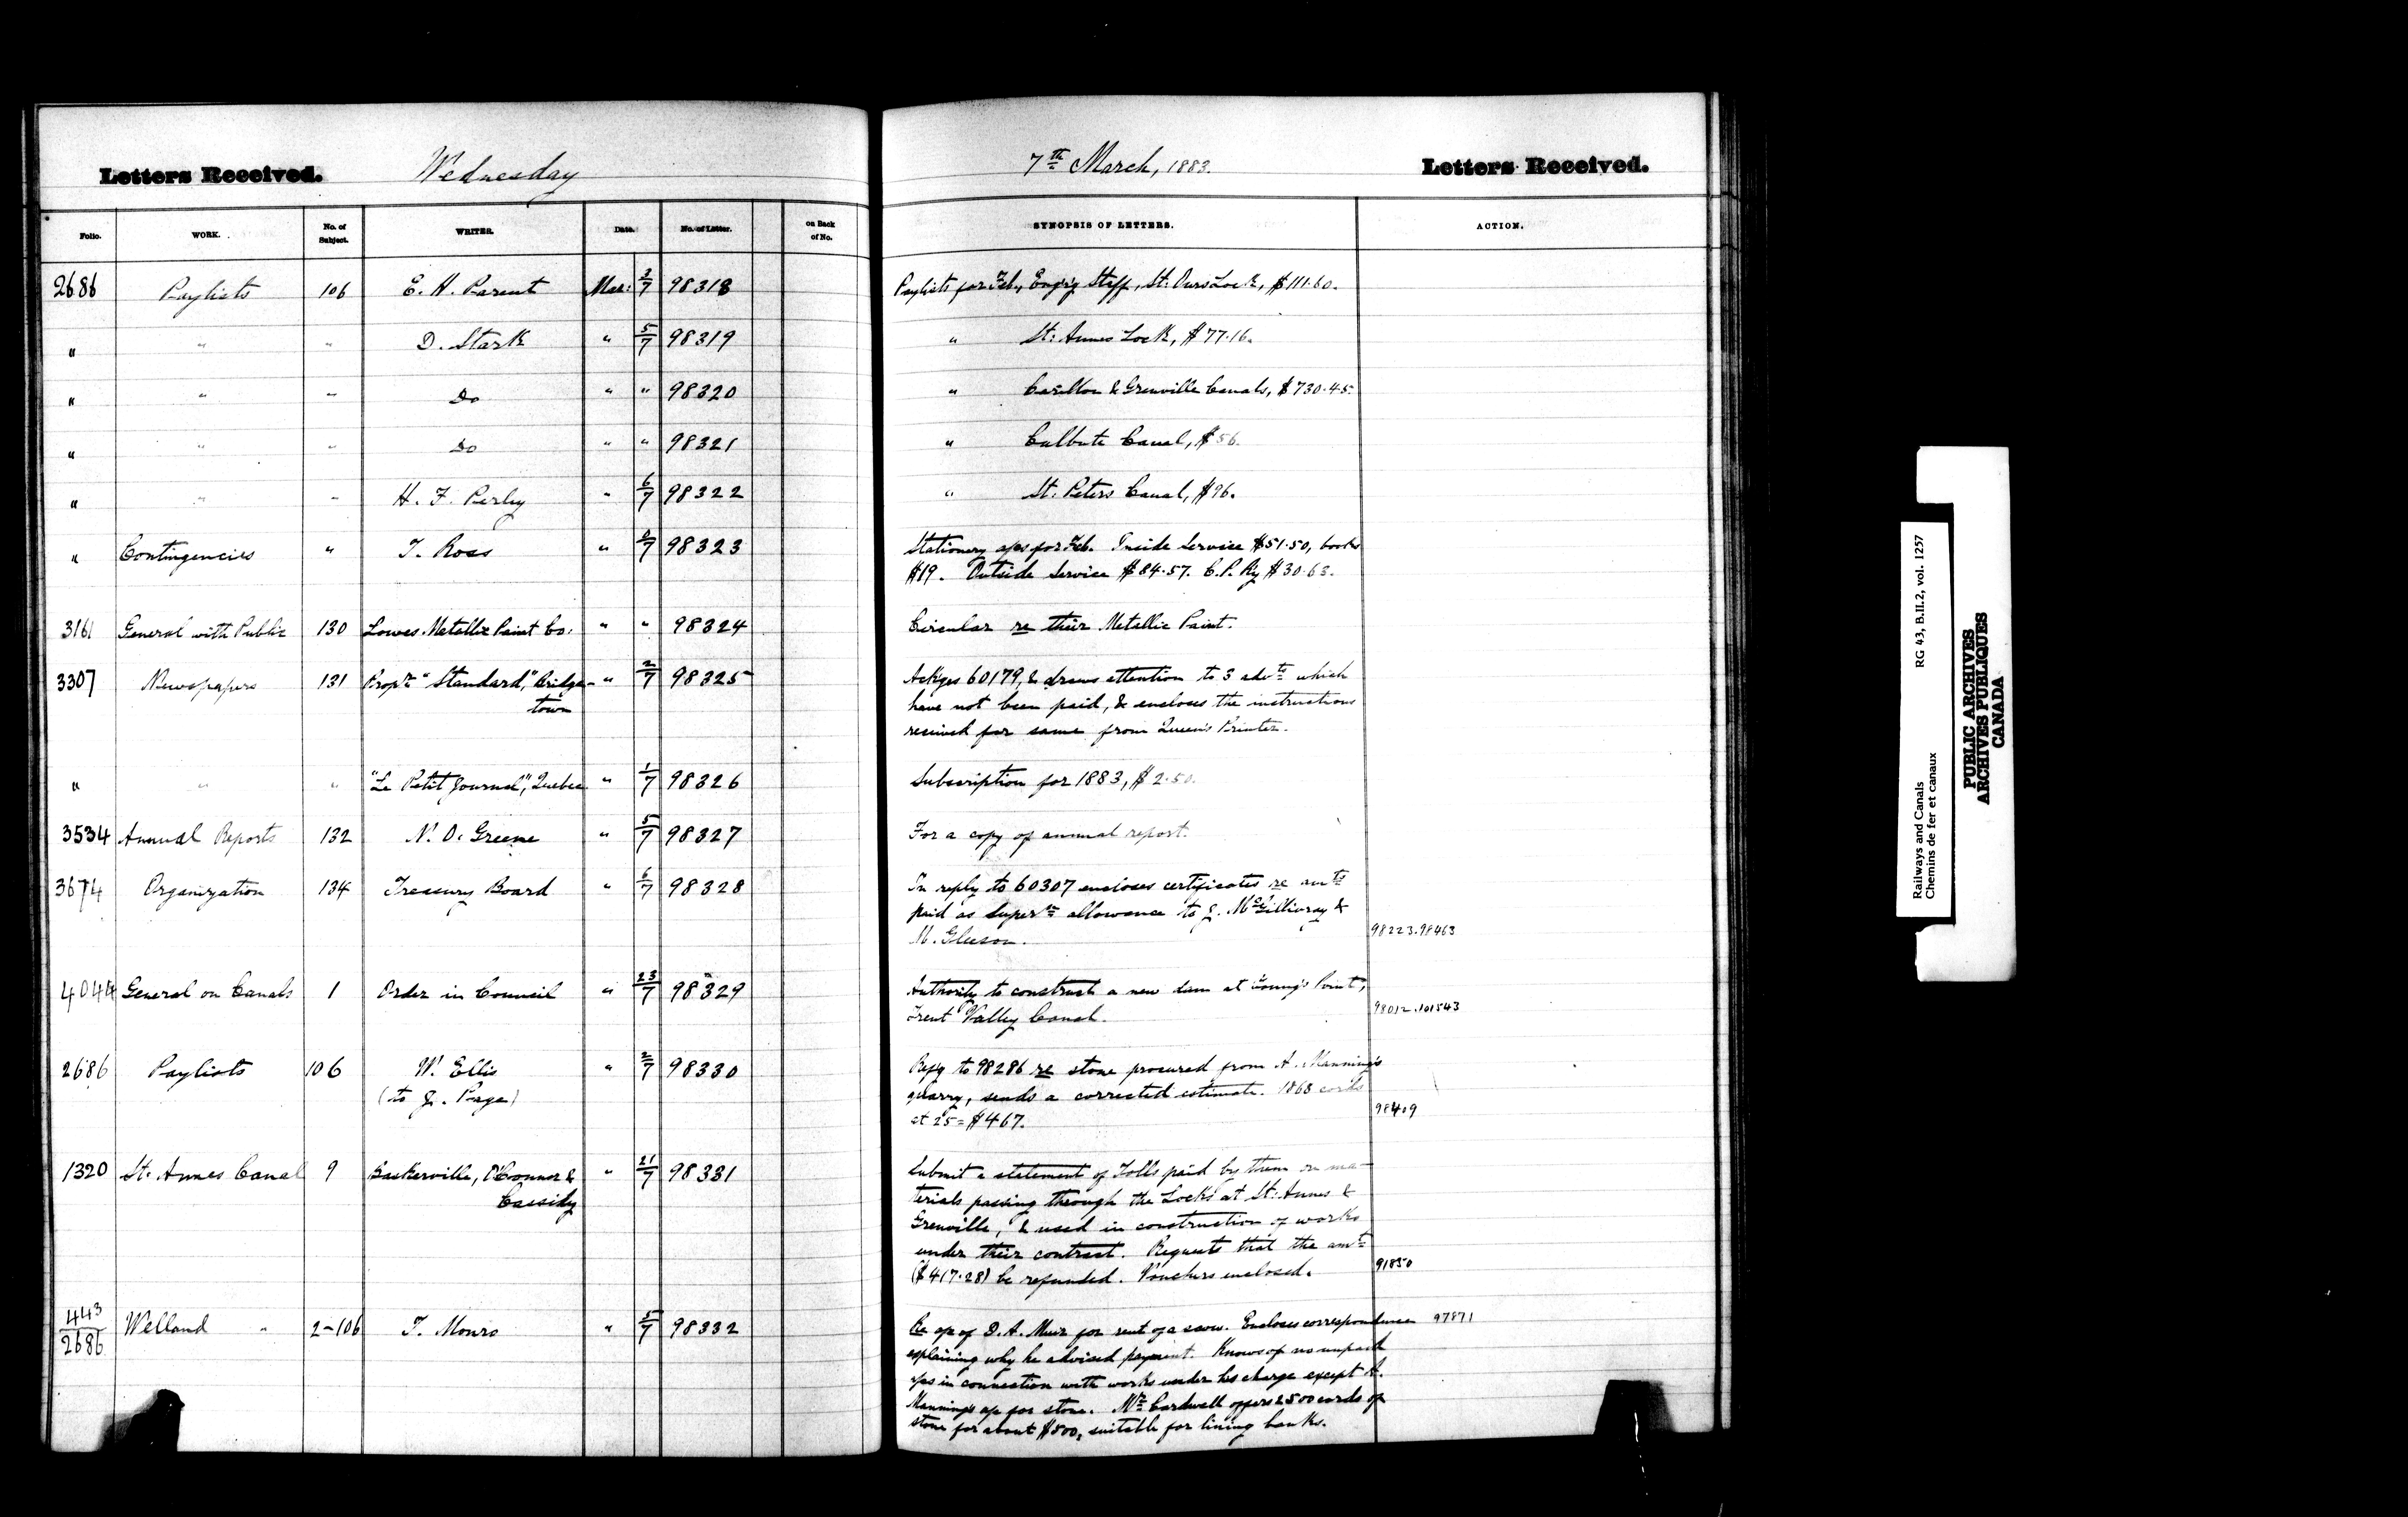 Letters Received. Wednesday 7th March, 1883. Letters Received.
Folio. WORK. No. of Subject. WRITER. Date. No. of Letter. on Back of No. SYNOPSIS OF LETTERS. ACTION.
2686 Paylists 106 E. H. Parent Mar: 3/7 98318 Paylists for Feb., Engrg Staff, St. Ours Lock, $111.60.
" " " D. Stark " 5/7 98319 " St: Annes Lock, $77.16.
" " " Do " " 98320 " Carillon & Grenville Canals, $730.45.
" " " Do " " 98321 " Culbute Canal, $56.
" " " H. F. Perley " 6/7 98322 " St. Peters Canal, $96.
" Contingencies " T. Ross " 98323 Stationery a/cs for Feb. Inside Service $51.50, books
$19. Outside Service $84.57. C.P. Ry $30.63.
3161 General with Public 130 Lowes Metallic Paint Co: " " 98324 Circular re their Metallic Paint.
3307 Newspapers 131 Propr "Standard," Bridge- " 2/7 98325 Ackges 60179, & draws attention to 3 advts which
town have not been paid, & encloses the instructions
received for same from Queen's Printer.
" " " "Le Petit Journal", Quebec " 1/7 98326 Subscription for 1883, $2.50.
3534 Annual Reports 132 N. O. Greene " 5/7 98327 For a copy of annual report.
3674 Organization 134 Treasury Board " 6/7 98328 In reply to 60307 encloses certificates re amts
paid as Super allowance to J. McGillivray &
M. Gleeson. 98223.98463
4044 General on Canals 1 Order in Council " 23/7 98329 Authority to construct a new dam at Young's Point,
Trent Valley Canal. 98012.101543
2686 Paylists 106 W. Ellis " 2/7 98330 Reply to 98286 re stone procured from A. Manning's
(to J. Page) quarry, sends a corrected estimate. 1868 cords
at 25 = $467. 98409
1320 St. Annes Canal 9 Baskerville, O'Connor & " 21/7 98331 Submit a statement of Tolls paid by them on ma-
Cassidy terials passing through the Locks at St: Annes &
Grenville, & used in construction of works
under their contract. Requests that the amt
($417.28) be refunded. Vouchers enclosed. 91850
443/2686 Welland " 2-106 T. Monro " 5/7 98332 Re a/c of D. A. Muir for rent of a scow. Encloses correspondence 97871
explaining why he advised payment. Knows of no unpaid
a/cs in connection with works under his charge except A.
Manning's a/c for stone. Mr Cardwell offers 2500 cords of
stone for about $800, suitable for lining banks.
Railways and Canals RG 43, B.II.2, vol. 1257
Chemins de fer et canaux
PUBLIC ARCHIVES
ARCHIVES PUBLIQUES
CANADA